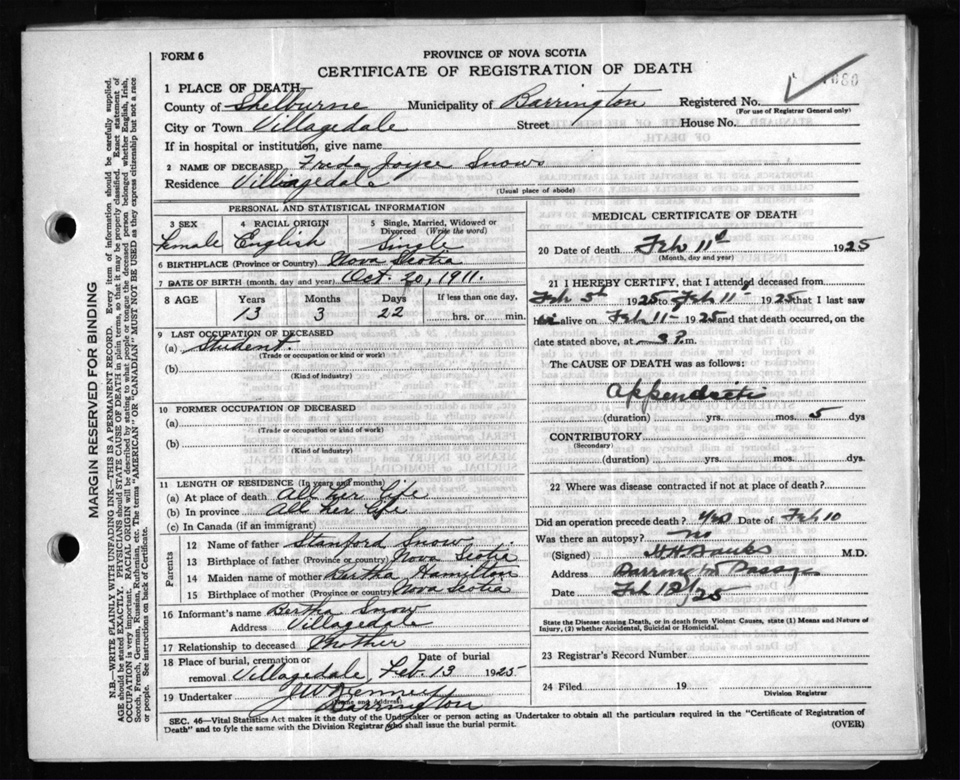 FORM 6
PROVINCE OF NOVA SCOTIA
CERTIFICATE OF REGISTRATION OF DEATH
1 PLACE OF DEATH
County of Shelburne Municipality of Barrington Registered No.
(For use of Registrar General only)
City or Town Villagedale Street House No.
If in hospital or institution, give name
2 NAME OF DECEASED Freda Joyce Snow
Residence Villagedale
(Usual place of abode)
PERSONAL AND STATISTICAL INFORMATION
3 SEX 4 RACIAL ORIGIN 5 Single, Married, Widowed or Divorced (Write the word)
Female English Single
6 BIRTHPLACE (Province or Country) Nova Scotia
7 DATE OF BIRTH (month, day and year) Oct. 20, 1911.
8 AGE Years Months Days If less than one day,
13 3 22 hrs. or min.
9 LAST OCCUPATION OF DECEASED
(a) Student.
(Trade or occupation or kind or work)
(b)
(Kind of industry)
10 FORMER OCCUPATION OF DECEASED
(a)
(Trade or occupation or kind of work)
(b)
(Kind of industry)
11 LENGTH OF RESIDENCE (In years and months)
(a) At place of death All her life
(b) In province All her life
(c) In Canada (if an immigrant)
Parents
12 Name of father Stanford Snow
13 Birthplace of father (Province or country) Nova Scotia
14 Maiden name of mother Bertha Hamilton
15 Birthplace of mother (Province or country) Nova Scotia
16 Informant's name Bertha Snow
Address Villagedale
17 Relationship to deceased Mother
18 Place of burial, cremation or removal Date of burial
Villagedale, Feb. 13 1925
19 Undertaker
(Name and Address)
Barrington
MEDICAL CERTIFICATE OF DEATH
20 Date of death Feb 11th 1925
(Month, day and year)
21 I HEREBY CERTIFY, that I attended deceased from
Feb 5th 1925 to Feb 11 1925 that I last saw
alive on Feb 11 1925 and that death occurred, on
date stated above, at 3 P.m.
The CAUSE OF DEATH was as follows:
Appendicitis
(duration) yrs. mos. 5 dys
CONTRIBUTORY
(Secondary)
(duration) yrs. mos. dys.
22 Where was disease contracted if not at place of death?
Did an operation precede death? yes Date of Feb 10
Was there an autopsy? no
(Signed) Banks M.D.
Address Barrington Passage
Date Feb 12/25
State the Disease causing Death, or in death from Violent Causes, state (1) Means and Nature of
Injury, (2) whether Accidental, Suicidal or Homicidal.
23 Registrar's Record Number
24 Filed 19
Division Registrar
SEC. 46—Vital Statistics Act makes it the duty of the Undertaker or person acting as Undertaker to obtain all the particulars required in the "Certificate of Registration of
Death" and to fyle the same with the Division Registrar who shall issue the burial permit. (OVER)
MARGIN RESERVED FOR BINDING
N.B.—WRITE PLAINLY WITH UNFADING INK—THIS IS A PERMANENT RECORD. Every item of information should be carefully supplied.
AGE should be stated EXACTLY. PHYSICIANS should STATE CAUSE OF DEATH in plain terms, so that it may be properly classified. Exact statement of
OCCUPATION is very important. RACIAL ORIGIN will be described by stating to what people or tongue the deceased person belonged whether English, Irish,
Scotch, French, German, Russian, Ruthenian, etc. The terms "AMERICAN" or "CANADIAN" MUST NOT BE USED as they express citizenship but not a race
or people. See instructions on back of Certificate.